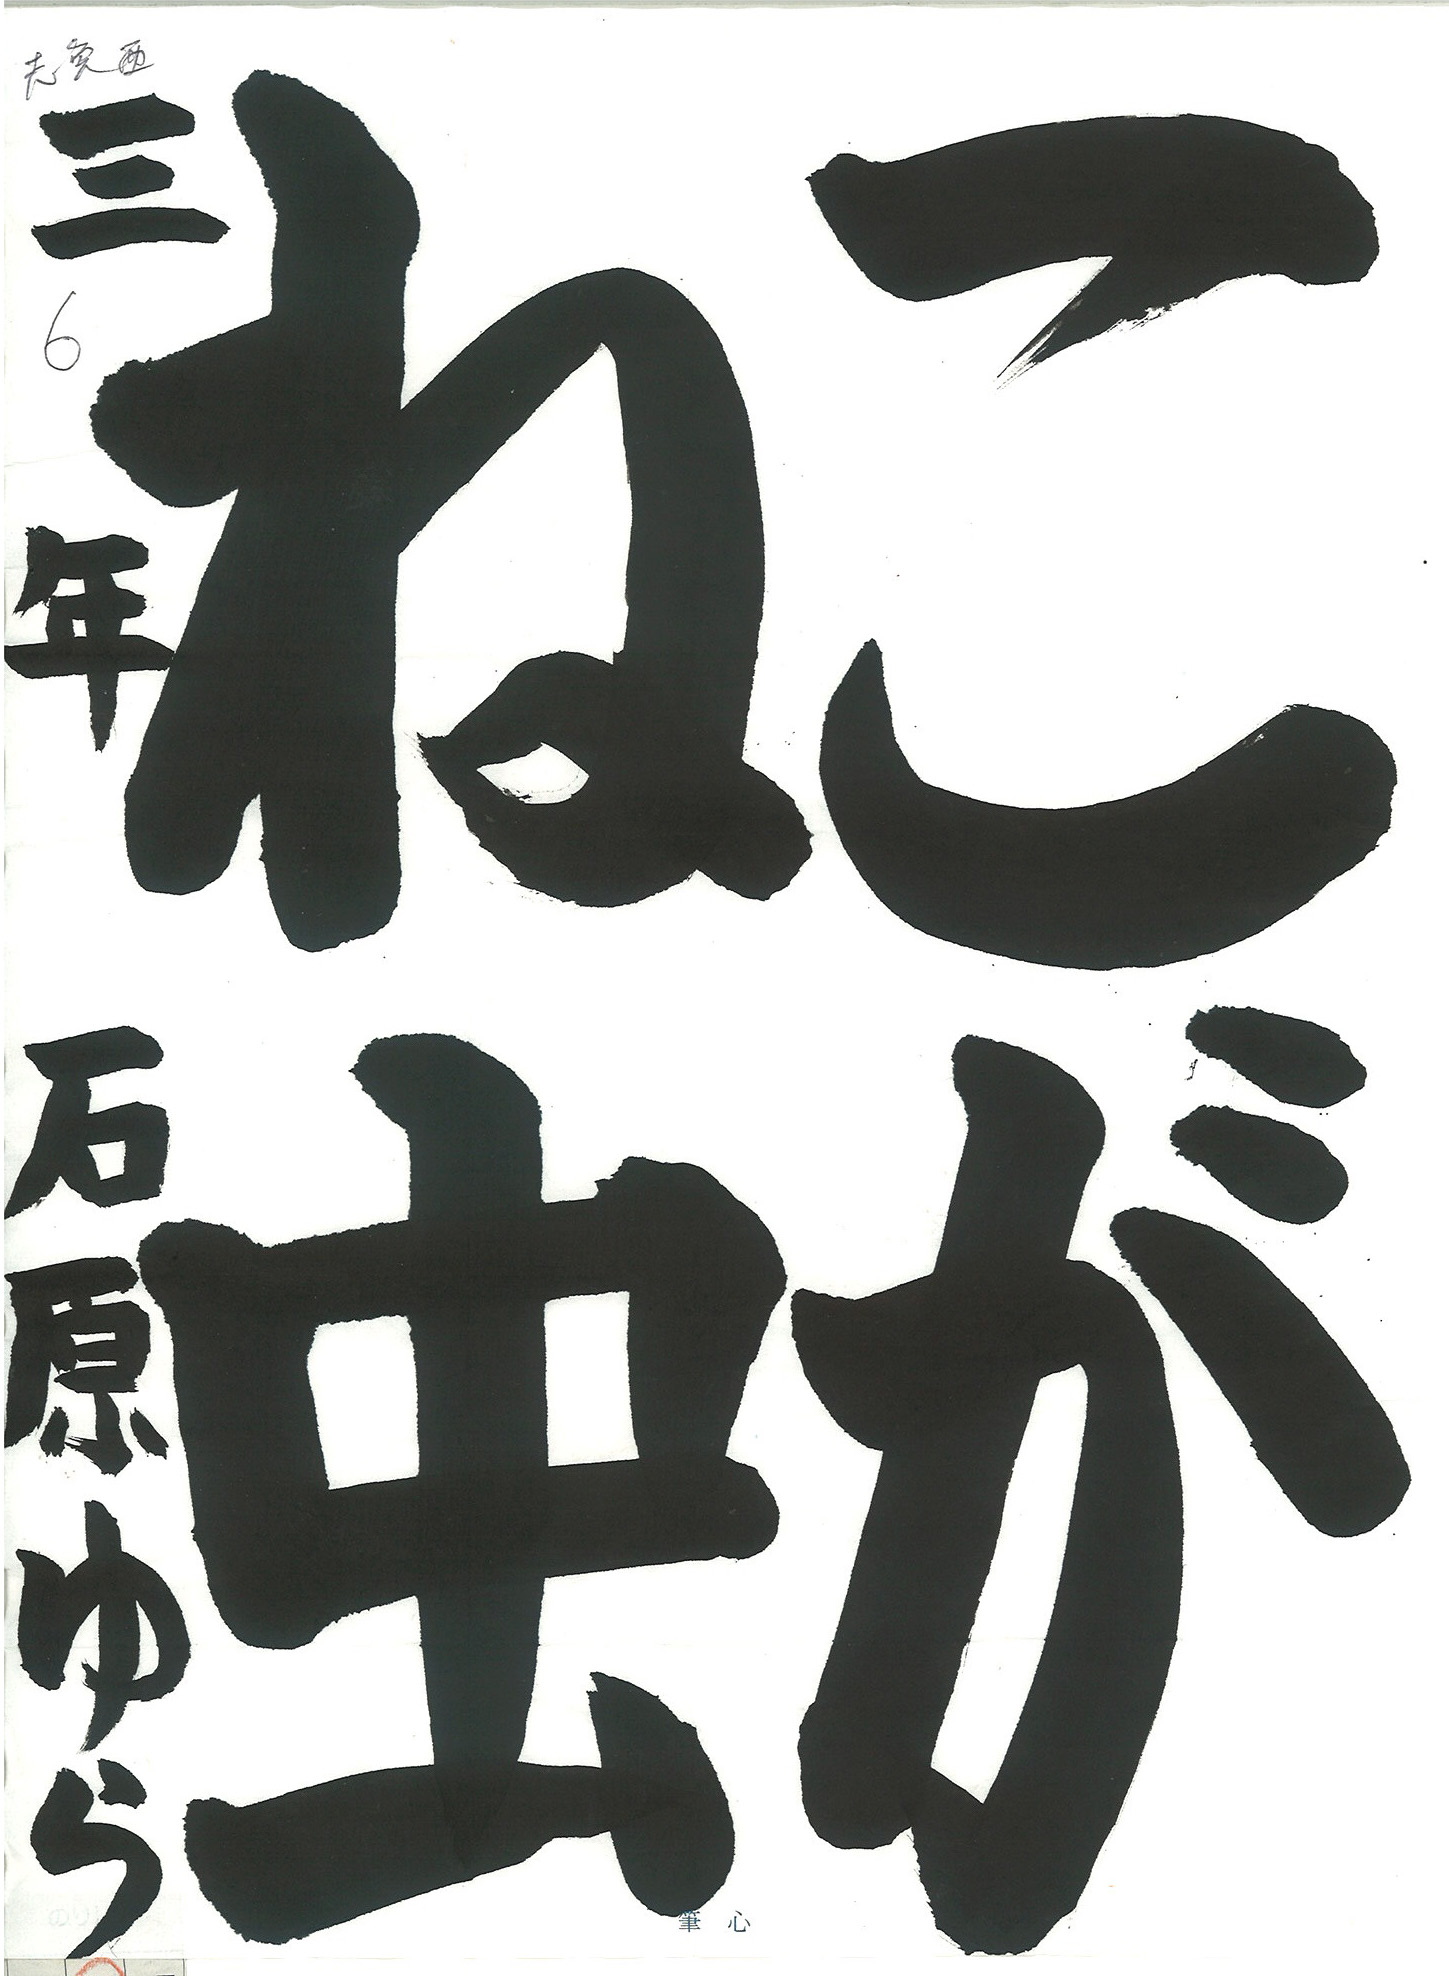 こがね虫
三年 石原ゆら
志賀西
6
筆心